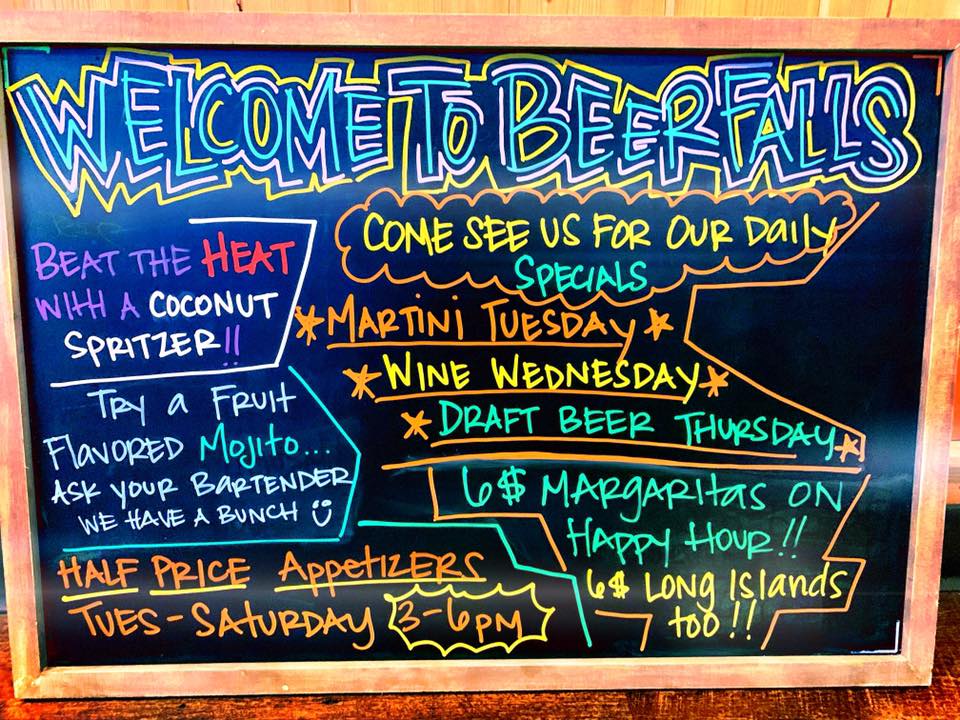 WELCOME TO BEER FALLS
BEAT THE HEAT
WITH A COCONUT
SPRITZER!!
TRY a FRUIT
FLAVORED MOJITO...
ASK YOUR BARTENDER
WE HAVE A BUNCH
HALF PRICE APPETIZERS
TUES-SATURDAY 3-6PM
COME SEE US FOR OUR DAILY
SPECIALS
MARTINI TUESDAY
WINE WEDNESDAY
DRAFT BEER THURSDAY
6$ MARGARITAS ON
HAPPY HOUR!!
6$ LONG ISLANDS
TOO!!